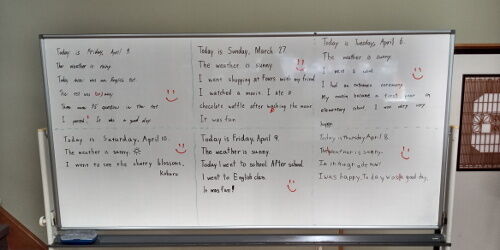 Today is Friday, April 9.
The weather is rainy.
Today there was an English test.
The test was easy.
There were 35 question in the test
I passed! It was a good day.
Today is Sunday, March 27.
The weather is sunny.
I went shopping at Fours with my friend.
I watched a movie. I ate a
chocolate waffle after watching the movie.
It was fun.
Today is Tuesday, April 6.
The weather is sunny.
I went a school
I had an entrance ceremony.
My became a first year in
elementary school. I was very very
happy.
Today is Saturday, April 10.
The weather is sunny.
I went to see the cherry blossoms.
Koharu
Today is Friday, April 9.
The weather is sunny.
Today I went to school. After school
I went to English class.
It was fun!
Today is Thursday April 8.
The weather is sunny.
I was happy. Today was a good day.